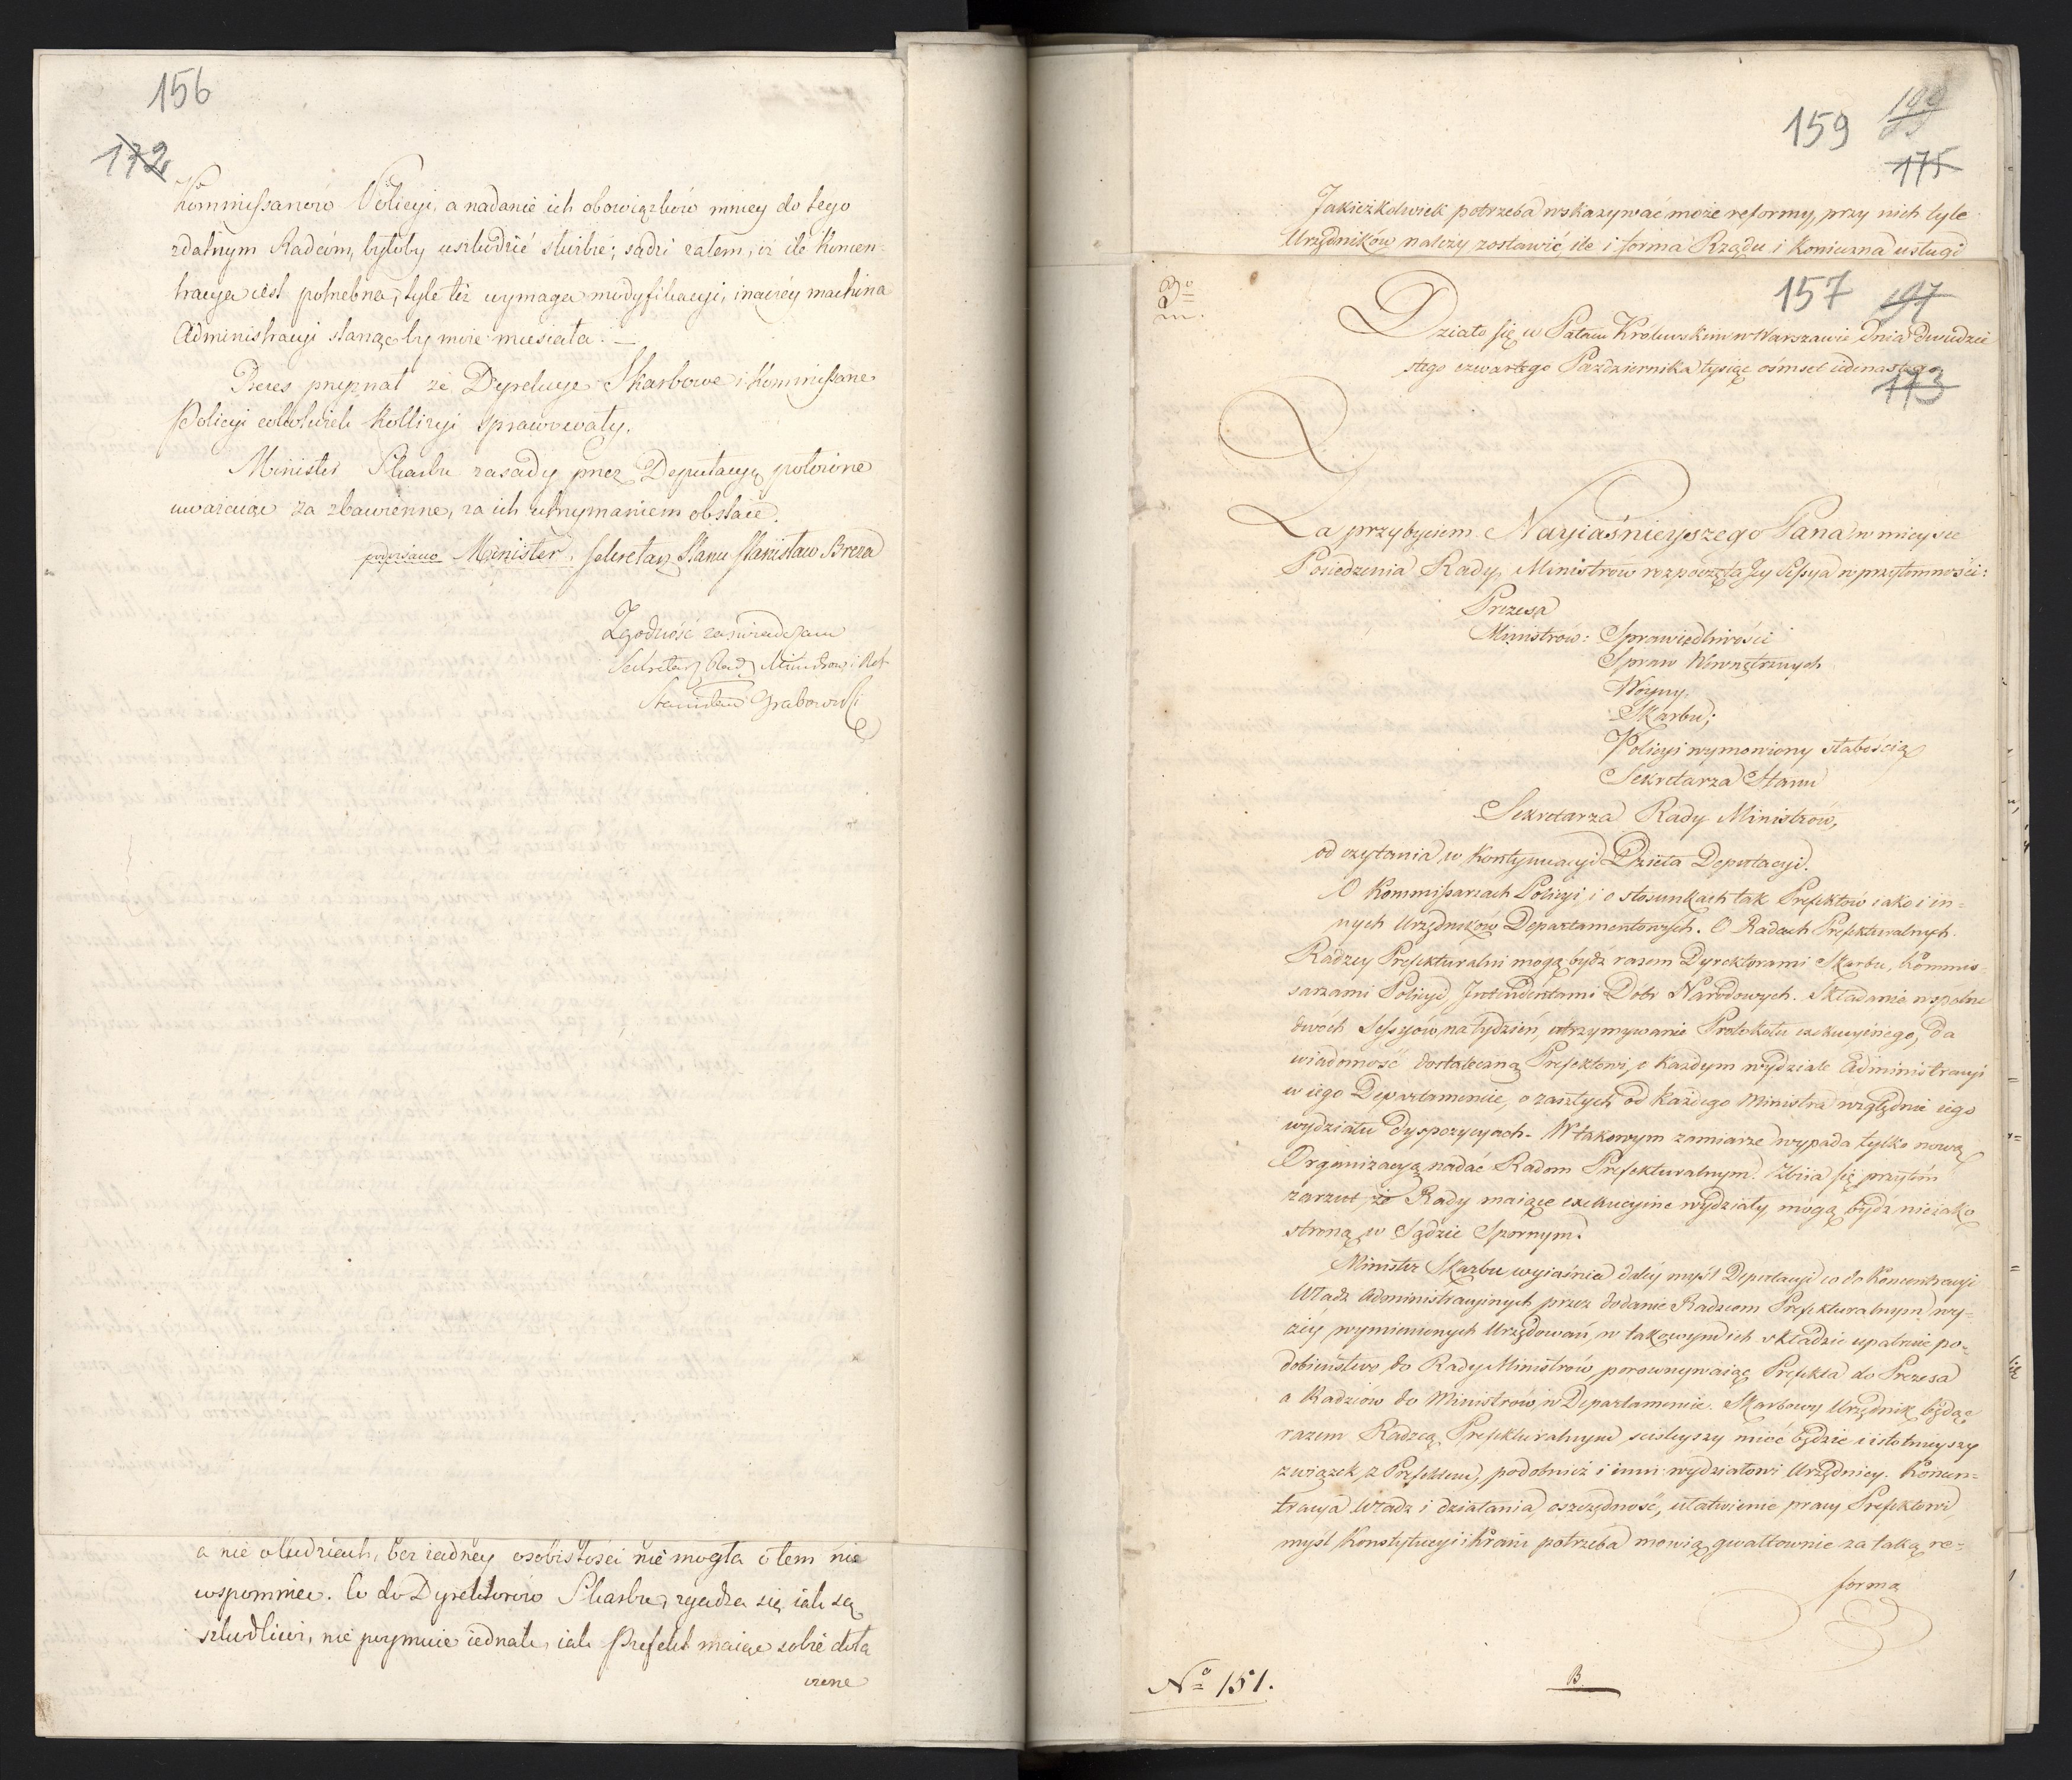 156
172
Kommissarzów Policyi, a nadanie ich obowiązków mniey do tego
zdatnym Radcóm, byłoby uszkodzić służbie; sądzi zatem, iż ile koncen-
tracya iest potrzebna, tyle też wymaga modyfikacyi, inaczéy machina
Administracyi stanąć by może musiała. —
Prezes przyznał że Dyrekcye Skarbowe i Kommissarze
Policyi cokolwiek kollizyi sprawowały.
Minister Skarbu zasady przez Deputacyą położone
uważaiąc za zbawienne, za ich utrzymaniem obstaie.
podpisano Minister, Sekretarz Stanu Stanisław Breza
Zgodność zaświadczam
Sekretarz Rady Ministrów i Ref.
Stanisław Grabowski
a nie o ludziach, bez żadney osobistości nie mogła o tem nie
wspomniec. Co do Dyrektorów Skarbu, zgadza się iak są
szkodliwi, nie poymuie iednak, iak Prefekt maiąc sobie dołą
czone
159
199
175
Jakieżkolwiek potrzeba wskazywać może reformy, przy nich tyle
Urzędników należy zostawić, ile i forma Rządu i konieczna usługi
157 197
Działo się w Pałacu Królewskim w Warszawie dnia dwudzie
stego czwartego Października tysiąc ośmset iedenastego
173
Za przybyciem Nayiaśnieyszego Pana w mieysce
Posiedzenia Rady, Ministrów rozpoczęła się Sessya w przytomności:
Prezesa
Ministrów: Sprawiedliwości
Spraw Wewnętrznych
Woyny.
Skarbu;
Policyi wymowiony słabością
Sekretarza Stanu
Sekretarza Rady Ministrów,
od czytania w kontynuacyi Dzieła Deputacyi.
O Kommissarzach Policyi, i o stosunkach tak Prefektów iako i in=
nych Urzędników Departamentowych. O Radach Prefekturalnych.
Radzcy Prefekturalni mogą bydź razem Dyrektorami Skarbu, Kommis
sarzami Policyi, Intendentami Dóbr Narodowych. Składanie wspólne
dwóch Sessyów na tydzień, utrzymywanie Protokołu exekucyinego, da
wiadomość dostateczną Prefektowi, o każdym wydziale Administracyi
w iego Departamencie, o zaszłych od każdego Ministra względnie iego
wydziału dyspozycyach. W takowym zamiarze wypada tylko nową
Organizacyą nadać Radom Prefekturalnym. Zbiia się przytém
zarzut, że Rady maiące exekucyine wydziały, mogą bydź nieiako
stroną w Sądzie Spornym.
Minister Skarbu wyiaśnia daléy myśl Deputacyi co do koncentracyi
Władz Administracyinych przez dodanie Radzcom Prefekturalnym wy-
żéy wymienionych Urzędowań, w takowym ich składzie upatruie po-
dobieństwo do Rady Ministrów, porównywaiąc Prefekta do Prezesa
a Radzców do Ministrów, w Departamencie. Skarbowy Urzędnik będąc
razem Radzcą Prefekturalnym, ściśleyszy mieć będzie i istotnieyszy
związek z Prefektem, podobnież i inni wydziałowi Urzędnicy. Koncen-
tracya Władz i działania, oszczędność, ułatwienie pracy Prefektowi,
myśl Konstytucyi i Kraiu potrzeba mówią gwałtownie za taką re-
forma
Nº 151.
B.